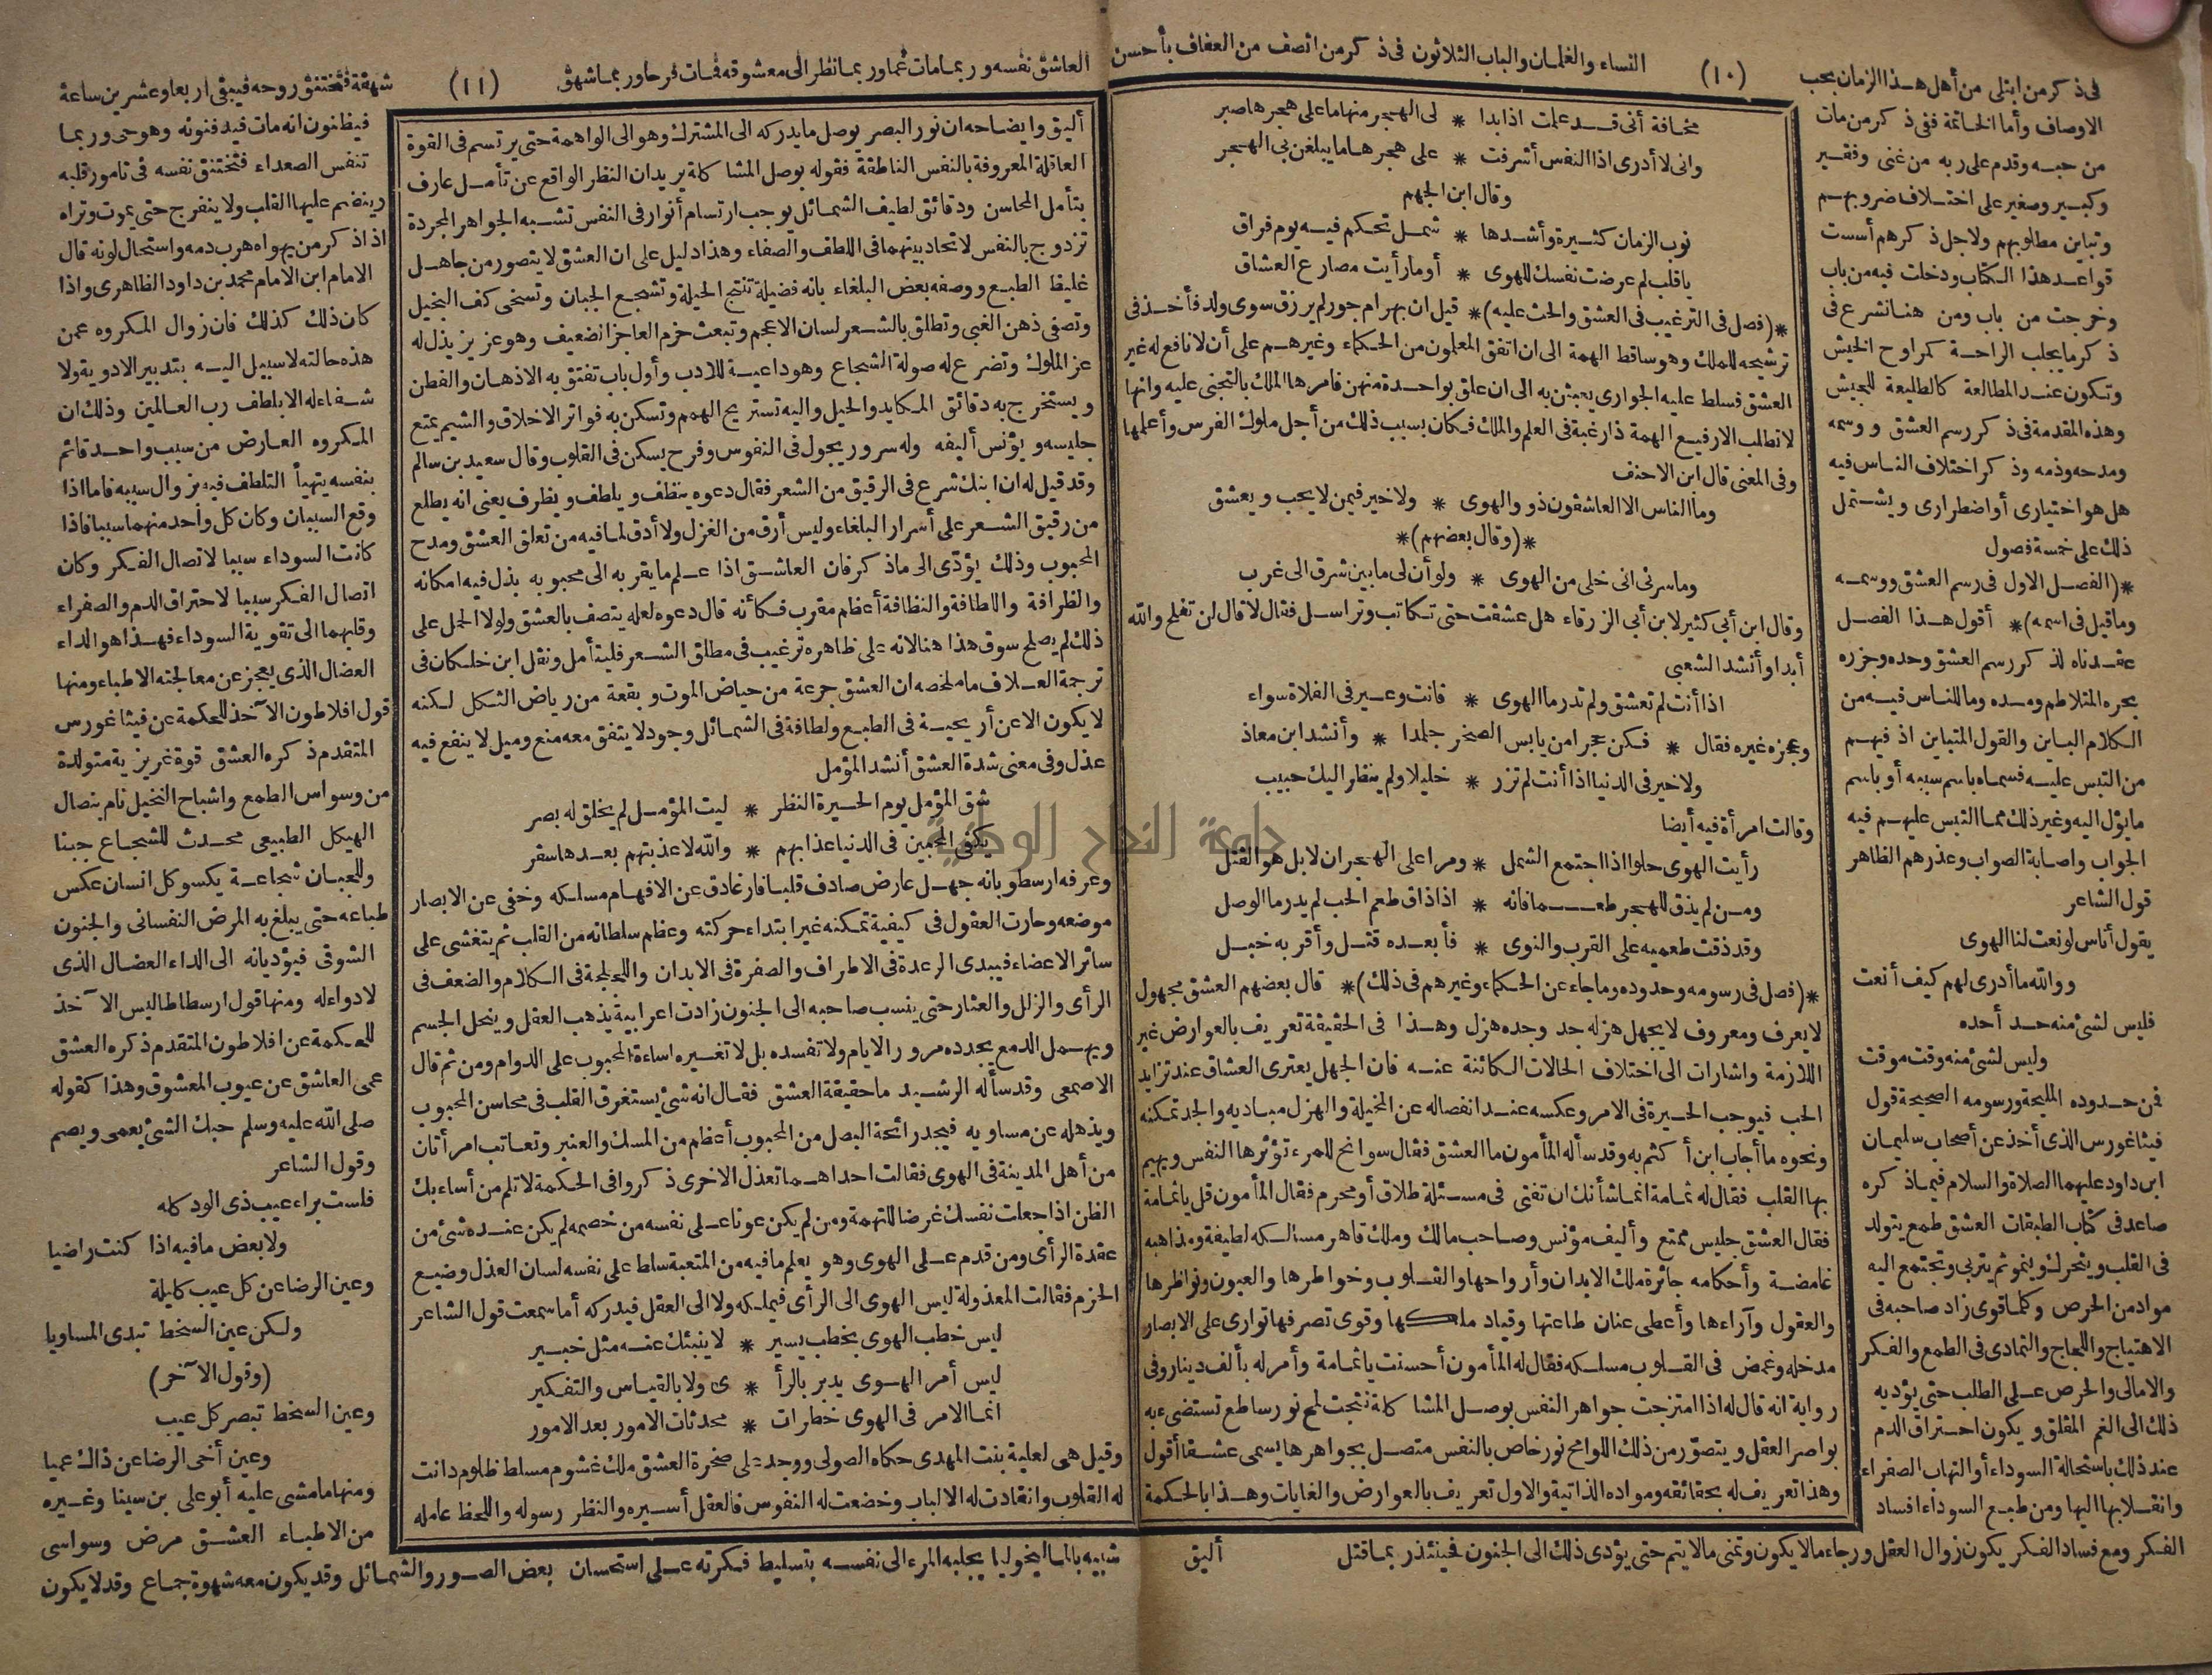 النساء والغلمان والباب الثلاثون فى ذكر من اتصف من العفاف بأحسن
(١٠)
فى ذكر من ابتلى من أهل هذا الزمان بحب
الاوصاف وأما الخاتمة ففى ذكر من مات
من حبه وقدم على ربه من غنى وفقير
وكبير وصغير على اختلاف ضروبهم
وتباين مطلوبهم ولاجل ذكرهم أسست
قواعد هذا الكتاب ودخلت فيه من باب
وخرجت من باب ومن هنا نشرع فى
ذكر ما يجلب الراحة كمراوح الخيش
وتكون عند المطالعة كالطليعة للجيش
وهذه المقدمة فى ذكر رسم العشق ووسمه
ومدحه وذمه وذكر اختلاف الناس فيه
هل هو اختيارى أو اضطرارى ويشتمل
ذلك على خمسة فصول
*(الفصل الاول فى رسم العشق ووسمه
وما قيل فى اسمه)* أقول هذا الفصل
عقدناه لذكر رسم العشق وحده وجزره
بحره المتلاطم ومده وما للناس فيه من
الكلام الباين والقول المتباين اذ فيهم
من التبس عليه فسماه باسم سببه أو باسم
ما يؤل اليه وغير ذلك مما التبس عليهم فيه
الجواب واصابة الصواب وعذرهم الظاهر
قول الشاعر
يقول أناس لو نعت لنا الهوى
ووالله ما أدرى لهم كيف أنعت
فليس لشئ منه حد أحده
وليس لشئ منه وقت موقت
فمن حدوده المليحة ورسومه الصحيحة قول
فيثاغورس الذى أخذ عن أصحاب سليمان
ابن داود عليهما الصلاة والسلام فيما ذكره
صاعد فى كتاب الطبقات العشق طمع يتولد
فى القلب ويتحرك وينمو ثم يتربى وتجتمع اليه
مواد من الحرص وكلما قوى زاد صاحبه فى
الاهتياج واللجاج والتمادى فى الطمع والفكر
والامالى والحرص على الطلب حتى يؤديه
ذلك الى الغم المقلق ويكون احتراق الدم
عند ذلك باستحالة السوداء أو التهاب الصفراء
وانقلابها اليها ومن طبع السوداء افساد
الفكر ومع فساد الفكر يكون زوال العقل ورجاء ما لا يكون وتمنى ما لا يتم حتى يؤدى ذلك الى الجنون فحينئذ ربما قتل
مخافة أنى قد علمت اذا بدا * لى الهجر منها ما على هجرها صبر
وانى لا أدرى اذا النفس أشرفت * على هجرها ما يبلغن بى الهجر
وقال ابن الجهم
نوب الزمان كثيرة وأشدها * شمل تحكم فيه يوم فراق
ياقلب لم عرضت نفسك للهوى * أو ما رأيت مصارع العشاق
*(فصل فى الترغيب فى العشق والحث عليه)* قيل ان بهرام جور لم يرزق سوى ولد فأخذ فى
ترشيحه للملك وهو ساقط الهمة الى ان اتفق المعلمون من الحكماء وغيرهم على أن لا نافع له غير
العشق فسلط عليه الجوارى يعبثن به الى ان علق بواحدة منهن فامرها الملك بالتجنى عليه وانها
لا تطلب الا رفيع الهمة ذا رغبة فى العلم والملك فكان بسبب ذلك من أجل ملوك الفرس وأعلمها
وفى المعنى قال ابن الاحنف
وما الناس الا العاشقون ذوو الهوى * ولا خير فيمن لا يحب ويعشق
*(وقال بعضهم)*
وما سرنى انى خلى من الهوى * ولو أن لى ما بين شرق الى غرب
وقال ابن أبى كثير لابن أبى الزرقاء هل عشقت حتى تكاتب وتراسل فقال لا قال لن تفلح والله
أبدا وأنشد الشعبى
اذا أنت لم تعشق ولم تدر ما الهوى * فانت وعير فى الفلاة سواء
وعجزه غيره فقال * فكن حجرا من يابس الصخر جلدا * وأنشد ابن معاذ
ولا خير فى الدنيا اذا أنت لم تزر * خليلا ولم ينظر اليك حبيب
وقالت امرأة فيه أيضا
رأيت الهوى حلوا اذا اجتمع الشمل * ومرا على الهجران لا بل هو القتل
ومن لم يذق للهجر طعما فانه * اذا ذاق طعم الحب لم يدر ما الوصل
وقد ذقت طعميه على القرب والنوى * فأبعده قتل وأقربه خبل
*(فصل فى رسومه وحدوده وما جاء عن الحكماء وغيرهم فى ذلك)* قال بعضهم العشق مجهول
لا يعرف ومعروف لا يجهل هزله جد وجده هزل وهذا فى الحقيقة تعريف بالعوارض غير
اللازمة واشارات الى اختلاف الحالات الكائنة عنه فان الجهل يعترى العشاق عند تزايد
الحب فيوجب الحيرة فى الامر وعكسه عند انفصاله عن المخيلة والهزل مباديه والجد تمكنه
ونحوه ما أجاب ابن أكثم به وقد سأله المأمون ما العشق فقال سوانح للمرء تؤثرها النفس ويهيم
بها القلب فقال له ثمامة انما شأنك ان تفتى فى مسئلة طلاق أو محرم فقال المأمون قل يا ثمامة
فقال العشق جليس ممتع وأليف مؤنس وصاحب مالك وملك قاهر مسالكه لطيفة ومذاهبه
غامضة وأحكامه جائزة ملك الابدان وأرواحها والقلوب وخواطرها والعيون ونواظرها
والعقول وآراءها وأعطى عنان طاعتها وقياد ملكها وقوى تصرفها توارى على الابصار
مدخله وغمض فى القلوب مسلكه فقال له المأمون أحسنت يا ثمامة وأمر له بألف دينار وفى
رواية انه قال له اذا امتزجت جواهر النفس بوصل المشاكلة نتجت لمح نور ساطع تستضىء به
بواصر العقل ويتصوّر من ذلك اللوامح نور خاص بالنفس متصل بجواهرها يسمى عشقا أقول
وهذا تعريف له بحقائقه ومواده الذاتية والاول تعريف بالعوارض والغايات وهذا بالحكمة
أليق
العاشق نفسه وربما مات غما وربما نظر الى معشوقه فمات فرحا وربما شهق
(١١)
شهقة فتختنق روحه فيبقى اربعا وعشرين ساعة
أليق وايضاحه ان نور البصر يوصل ما يدركه الى المشترك وهو الى الواهمة حتى يرتسم فى القوة
العاقلة المعروفة بالنفس الناطقة فقوله بوصل المشاكلة يريد ان النظر الواقع عن تأمل عارف
بتأمل المحاسن ودقائق لطيف الشمائل يوجب ارتسام أنوار فى النفس تشبه الجواهر المجردة
تزدوج بالنفس لاتحاد بينهما فى اللطف والصفاء وهذا دليل على ان العشق لا يتصور من جاهل
غليظ الطبع ووصفه بعض البلغاء بانه فضيلة تنتج الحيلة وتشجع الجبان وتسخى كف البخيل
وتصفى ذهن الغبى وتطلق بالشعر لسان الاعجم وتبعث حزم العاجز الضعيف وهو عزيز يذل له
عز الملوك وتضرع له صولة الشجاع وهو داعية للادب وأول باب تفتق به الاذهان والفطن
ويستخرج به دقائق المكايد والحيل واليه تستريح الهمم وتسكن به فواتر الاخلاق والشيم يمتع
جليسه ويؤنس أليفه وله سرور يجول فى النفوس وفرح يسكن فى القلوب وقال سعيد بن سالم
وقد قيل له ان ابنك شرع فى الرقيق من الشعر فقال دعوه ينظف ويلطف ويظرف يعنى انه يطلع
من رقيق الشعر على أسرار البلغاء وليس أرق من الغزل ولا أدق لما فيه من تعلق العشق ومدح
المحبوب وذلك يؤدّى الى ما ذكر فان العاشق اذا علم ما يقربه الى محبوبه بذل فيه امكانه
والظرافة واللطافة والنظافة أعظم مقرب فكأنه قال دعوه لعله يتصف بالعشق ولولا الحمل على
ذلك لم يصلح سوق هذا هنا لانه على ظاهره ترغيب فى مطلق الشعر فليتأمل ونقل ابن خلكان فى
ترجمة العلاف ما ملخصه ان العشق جرعة من حياض الموت وبقعة من رياض الثكل لكنه
لا يكون الا عن أريحية فى الطبع ولطافة فى الشمائل وجود لا يتفق معه منع وميل لا ينفع فيه
عذل وفى معنى شدة العشق أنشد المؤمل
شق المؤمل يوم الحيرة النظر * ليت المؤمل لم يخلق له بصر
يكفى المحبين فى الدنيا عذابهم * والله لا عذبتهم بعدها سقر
وعرفه ارسطو بانه جهل عارض صادف قلبا فارغا دق عن الافهام مسلكه وخفى عن الابصار
موضعه وحارت العقول فى كيفية تمكنه غير ابتداء حركته وعظم سلطانه من القلب ثم يتغشى على
سائر الاعضاء فيبدى الرعدة فى الاطراف والصفرة فى الابدان واللجلجة فى الكلام والضعف فى
الرأى والزلل والعثار حتى ينسب صاحبه الى الجنون زادت اعرابية يذهب العقل وينحل الجسم
ويهمل الدمع يجدده مرور الايام ولا تفسده بل لا تغيره اساءة المحبوب على الدوام ومن ثم قال
الاصمعى وقد سأله الرشيد ما حقيقة العشق فقال انه شئ يستغرق القلب فى محاسن المحبوب
ويذهله عن مساويه فيجد رائحة البصل من المحبوب أعظم من المسك والعنبر وتعاتب امرأتان
من أهل المدينة فى الهوى فقالت احداهما تعذل الاخرى ذكروا فى الحكمة لا تلم من أساء بك
الظن اذا جعلت نفسك غرضا للتهمة ومن لم يكن عونا على نفسه من خصمه لم يكن عنده شئ من
عقدة الرأى ومن قدم على الهوى وهو يعلم ما فيه من المتعبة سلط على نفسه لسان العذل وضيع
الحزم فقالت المعذولة ليس الهوى الى الرأى فيملكه ولا الى العقل فيدركه أما سمعت قول الشاعر
ليس خطب الهوى بخطب يسير * لا ينبئك عنه مثل خبير
ليس أمر الهوى يدبر بالرأ * ى ولا بالقياس والتفكير
انما الامر فى الهوى خطرات * محدثات الامور بعد الامور
وقيل هى لعلية بنت المهدى حكاه الصولى ووجد على صخرة العشق ملك غشوم مسلط ظلوم دانت
له القلوب وانقادت له الالباب وخضعت له النفوس فالعقل أسيره والنظر رسوله واللحظ عامله
فيظنون انه مات فيدفنونه وهو حى وربما
تنفس الصعداء فتختنق نفسه فى تامور قلبه
وينضم عليها القلب ولا ينفرج حتى يموت وتراه
اذا ذكر من يهواه هرب دمه واستحال لونه قال
الامام ابن الامام محمد بن داود الظاهرى واذا
كان ذلك كذلك فان زوال المكروه عمن
هذه حالته لا سبيل اليه بتدبير الادوية ولا
شفاء له الا بلطف رب العالمين وذلك ان
المكروه العارض من سبب واحد قائم
بنفسه يتهيأ التلطف فيه بزوال سببه فاما اذا
وقع السببان وكان كل واحد منهما سببا فاذا
كانت السوداء سببا لاتصال الفكر وكان
اتصال الفكر سببا لاحتراق الدم والصفراء
وقلبهما الى تقوية السوداء فهذا هو الداء
العضال الذى يعجز عن معالجته الاطباء ومنها
قول افلاطون الآخذ للحكمة عن فيثاغورس
المتقدم ذكره العشق قوة غريزية متولدة
من وسواس الطمع واشباح التخيل نام بنصال
الهيكل الطبيعى محدث للشجاع جبنا
وللجبان شجاعة يكسو كل انسان عكس
طباعه حتى يبلغ به المرض النفسانى والجنون
الشوقى فيؤديانه الى الداء العضال الذى
لا دواء له ومنها قول ارسطاطاليس الآخذ
للحكمة عن افلاطون المتقدم ذكره العشق
عمى العاشق عن عيوب المعشوق وهذا كقوله
صلى الله عليه وسلم حبك الشئ يعمى ويصم
وقول الشاعر
فلست براء عيب ذى الود كله
ولا بعض ما فيه اذا كنت راضيا
وعين الرضا عن كل عيب كليلة
ولكن عين السخط تبدى المساويا
(وقول الآخر)
وعين السخط تبصر كل عيب
وعين أخى الرضا عن ذاك عميا
ومنها ما مشى عليه أبو على بن سينا وغيره
من الاطباء العشق مرض وسواسى
شبيه بالماليخوليا يجلبه المرء الى نفسه بتسليط فكرته على استحسان بعض الصور والشمائل وقد يكون معه شهوة جماع وقد لا يكون
جامعة النجاح الوطنية